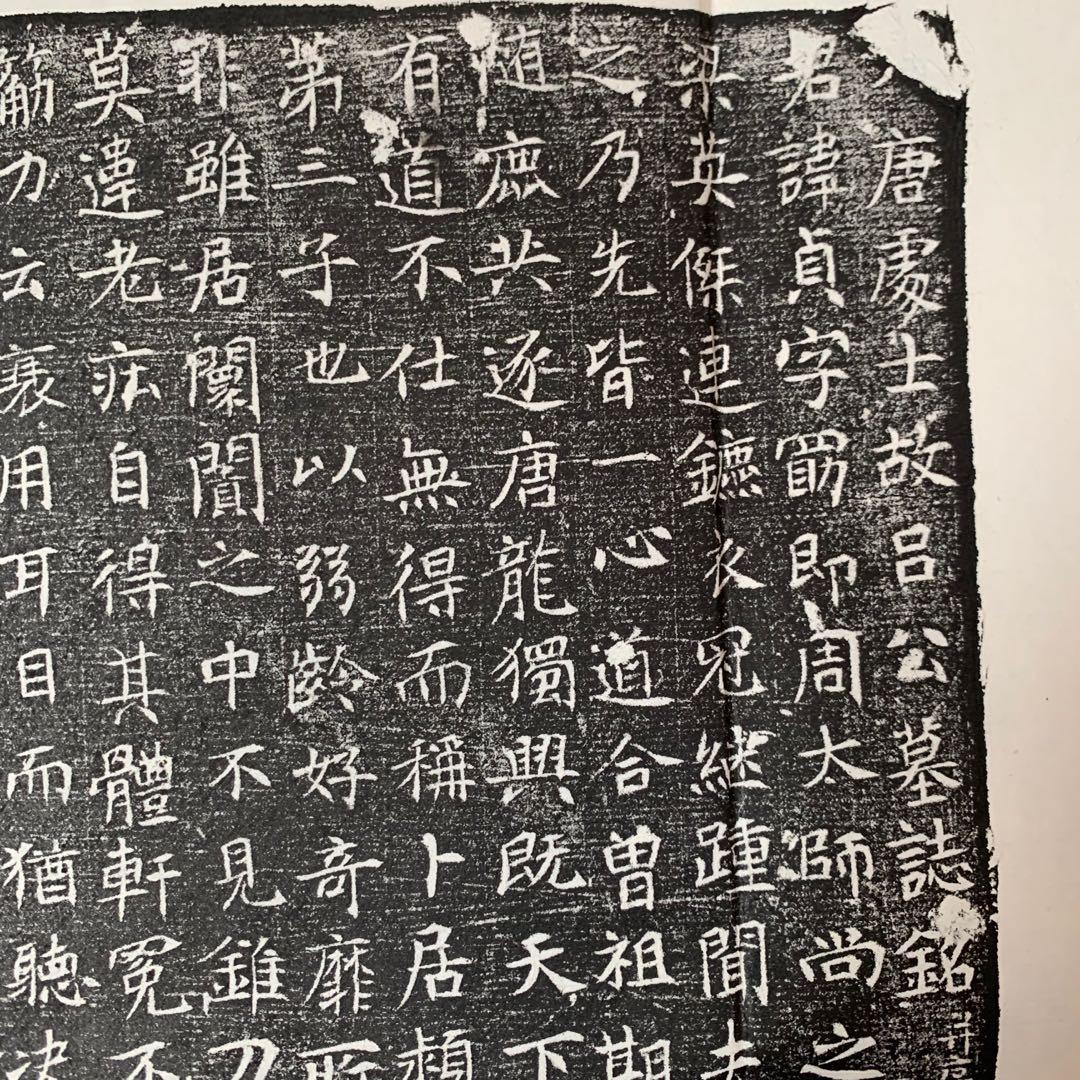 唐處士故吕公墓誌銘
君諱貞字罰即周太師尚之
英傑連鑣衣冠繼踵聞夫
之乃先皆一心道合曾祖期
随庶共逐唐龍獨興既天下
有道不仕無得而稱卜居頻
第三子也以弱齡好奇靡所
非雖居闤闠之中不見錐刀
莫違老疾自得其體軒冕不
筋力云衰用耳目而猶聴決